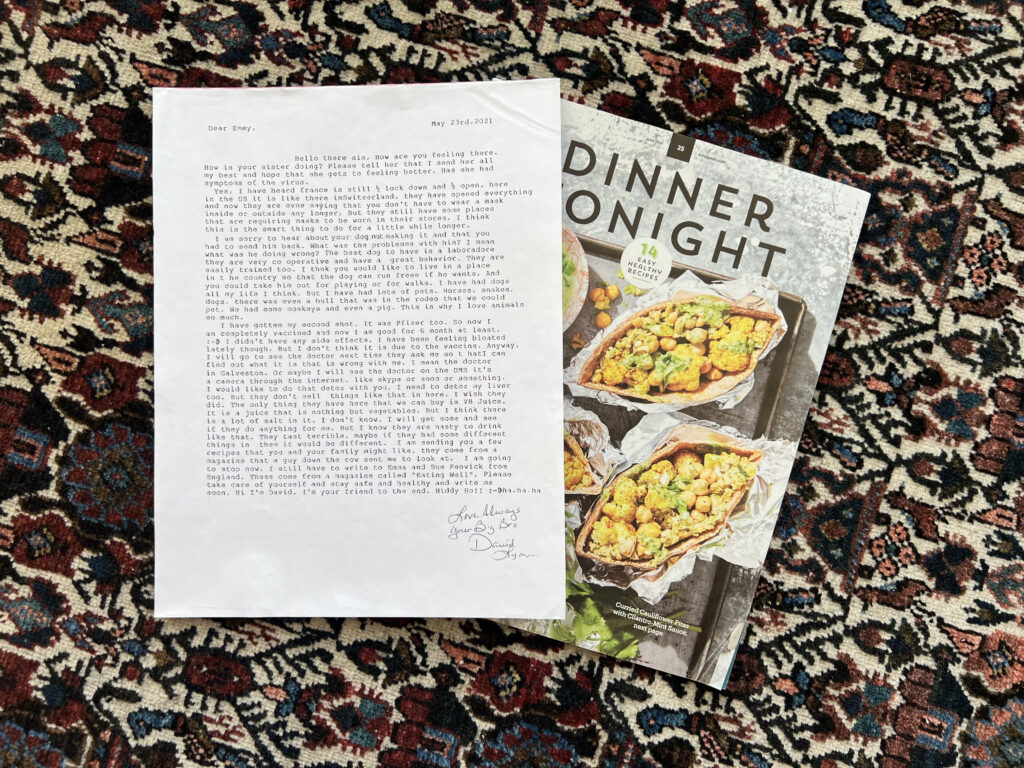 Dear Emmy,
May 23rd,2021
Hello there sis, How are you feeling there.
How is your sister doing? Please tell her that I send her all
my best and hope that she gets to feeling better. Has she had
symptoms of the virus.
Yes, I have heard france is still ½ lock down and ½ open. here
in the US it is like there inSwitzerland. they have opened everything
and now they are evne saying that you don't have to wear a mask
inside or outside any longer. But they still have some places
that are requiring masks to be worn in their stores. I think
this is the smart thing to do for a little while longer.
I am sorry to hear about your dog not making it and that you
had to send him back. What was the problems with him? I mean
what was he doing wrong? The best dog to have is a laboradore
they are very co operative and have a great behavior. They are
easily trained too. I thnk you would like to live in a place
in t he country so that the dog can run freee if he wants. And
you could take him out for playing or for walks. I have had dogs
all my life I think. But I have had lots of pets. Horses, snakes,
dogs, there was even a bull that was in the rodeo that we could
pet. We had some monkeys and even a pig. This is why I love animals
so much.
I have gotten my second shot. It was Pfizer too. So now I
am completely vaccined and now I am good for 6 month at least.
:-D I didn't have any side effects. I have been feeling bloated
lately though. But I don't think it is due to the vaccine. Anyway,
I will go to see the doctor next time they ask me so t hatI can
find out what it is that is wrong with me. I mean the doctor
in Galveston. Or maybe I will see the doctor on the DMS it's
a camera through the internet. like skype or zoom or something.
I would like to do that detox with you. I need to detox my liver
too. But they don't sell things like that in here. I wish they
did. The only thing they have here that we can buy is V8 Juice.
It is a juice that is nothing but vegetables. But I think there
is a lot of salt in it. I don't know. I will get some and see
if they do anything for me. But I know they are nasty to drink
like that. They tast terrible. maybe if they had some different
things in them it would be different. I am sending you a few
recipes that you and your family might like. they come from a
magazine that a guy down the row sent me to look at. I am going
to stop now. I still have to write to Emma and Sue Fenwick from
England. These come from a magazine called "Eating Well". Please
take care of yourself and stay safe and healthy and write me
soon. Hi I'm David. I'm your friend to the end. Hiddy Ho!! :-Dha.ha.ha
Love Always
Your Big Bro
David
25
DINNER
ONIGHT
14
EASY
HEALTHY
RECIPES
Curried Cauliflower Pitas
with Cilantro-Mint Sauce,
next page